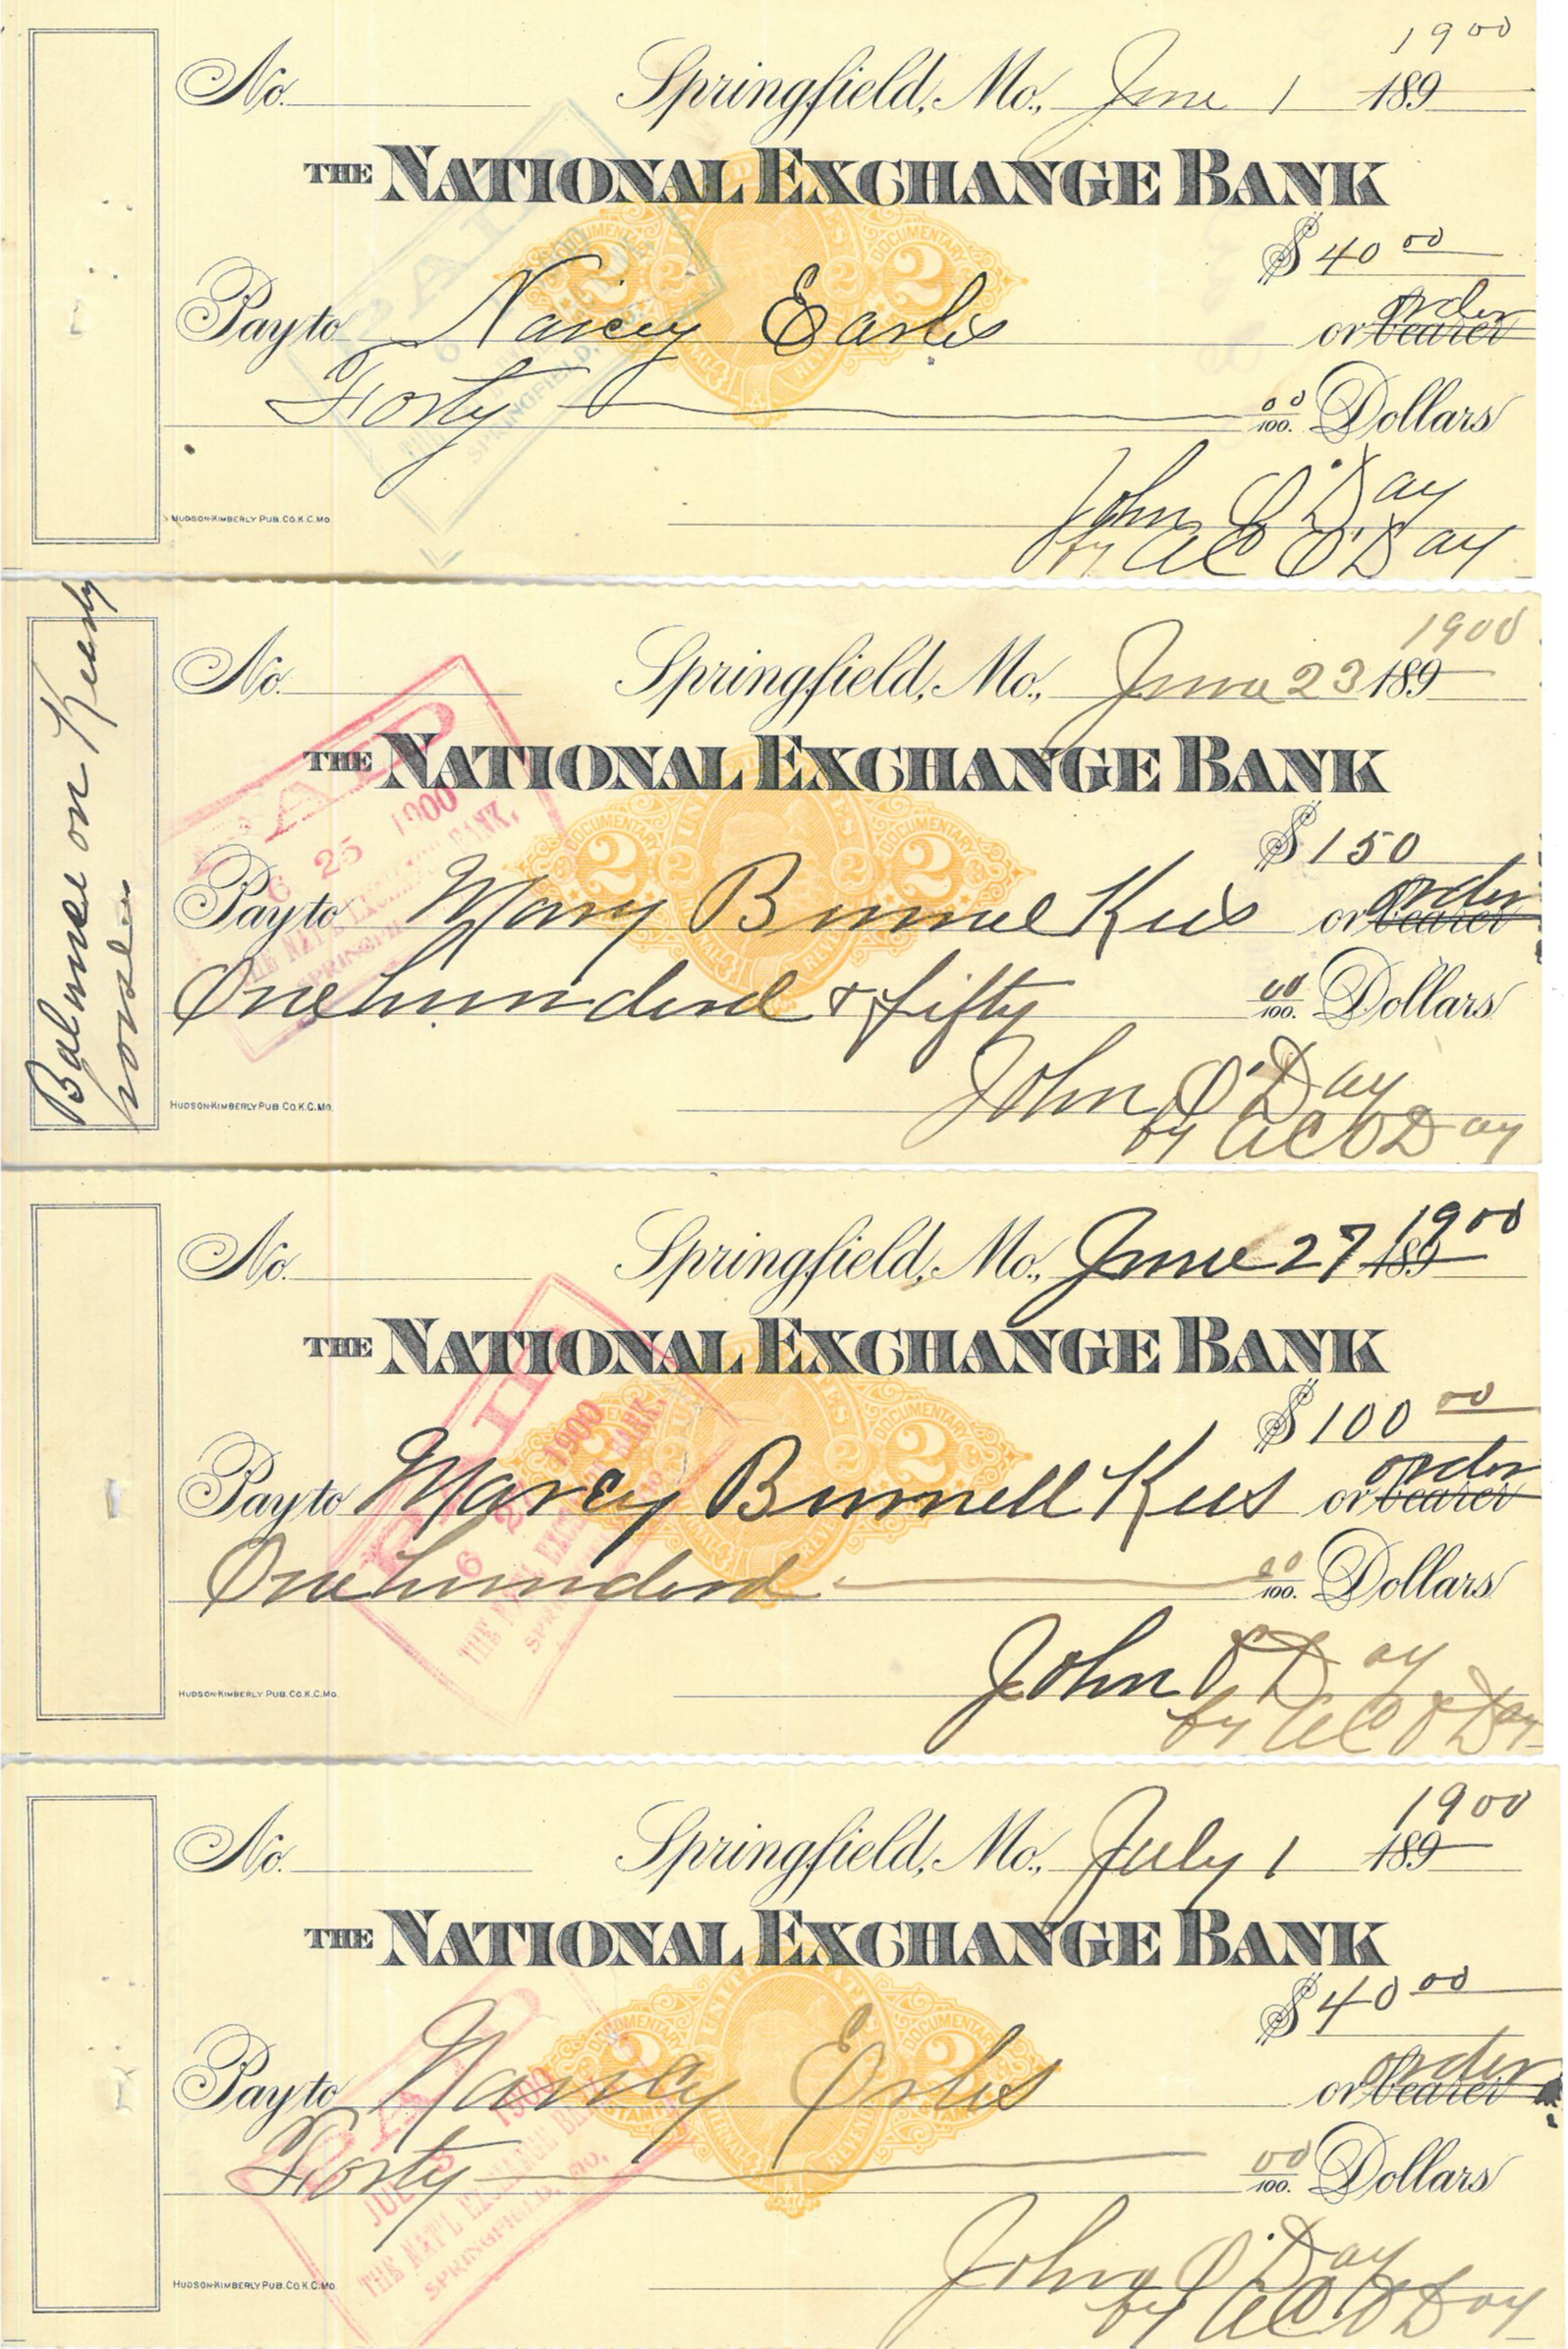 1900
No. Springfield, Mo., June 1 189
THE NATIONAL EXCHANGE BANK
$ 40 00
order
Pay to Nancy Earlis or bearer
Forty 00/100. Dollars
John O'Day
by AC O'Day
HUDSON-KIMBERLY PUB. CO. K.C. MO.
PAID
SPRINGFIELD,
DOCUMENTARY
2 2 2 2
Balance on
house
1900
No. Springfield, Mo., June 23 189
THE NATIONAL EXCHANGE BANK
$ 150
order
Pay to Mary Bunnel Kees or bearer
One hundred & fifty 00/100. Dollars
John O'Day
by AC O'Day
HUDSON-KIMBERLY PUB. CO. K.C. MO.
PAID
6 25 1900
THE NAT'L EXCHANGE BANK,
SPRINGFIELD
DOCUMENTARY DOCUMENTARY
2 2 2 2
1900
No. Springfield, Mo., June 27 189
THE NATIONAL EXCHANGE BANK
$ 100 00
order
Pay to Marey Burnell Kees or bearer
One hundred 00/100. Dollars
John O'Day
by AC O'Day
HUDSON-KIMBERLY PUB. CO. K.C. MO.
PAID
1900
THE NAT'L EXCHANGE BANK,
DOCUMENTARY
2 2
1900
No. Springfield, Mo., July 1 189
THE NATIONAL EXCHANGE BANK
$ 40 00
order
Pay to Nancy Erlis or bearer
Forty 00/100. Dollars
John O'Day
by AC O'Day
HUDSON-KIMBERLY PUB. CO. K.C. MO.
PAID
JUL 1900
THE NAT'L EXCHANGE BANK
SPRINGFIELD, MO.
DOCUMENTARY DOCUMENTARY
2 2